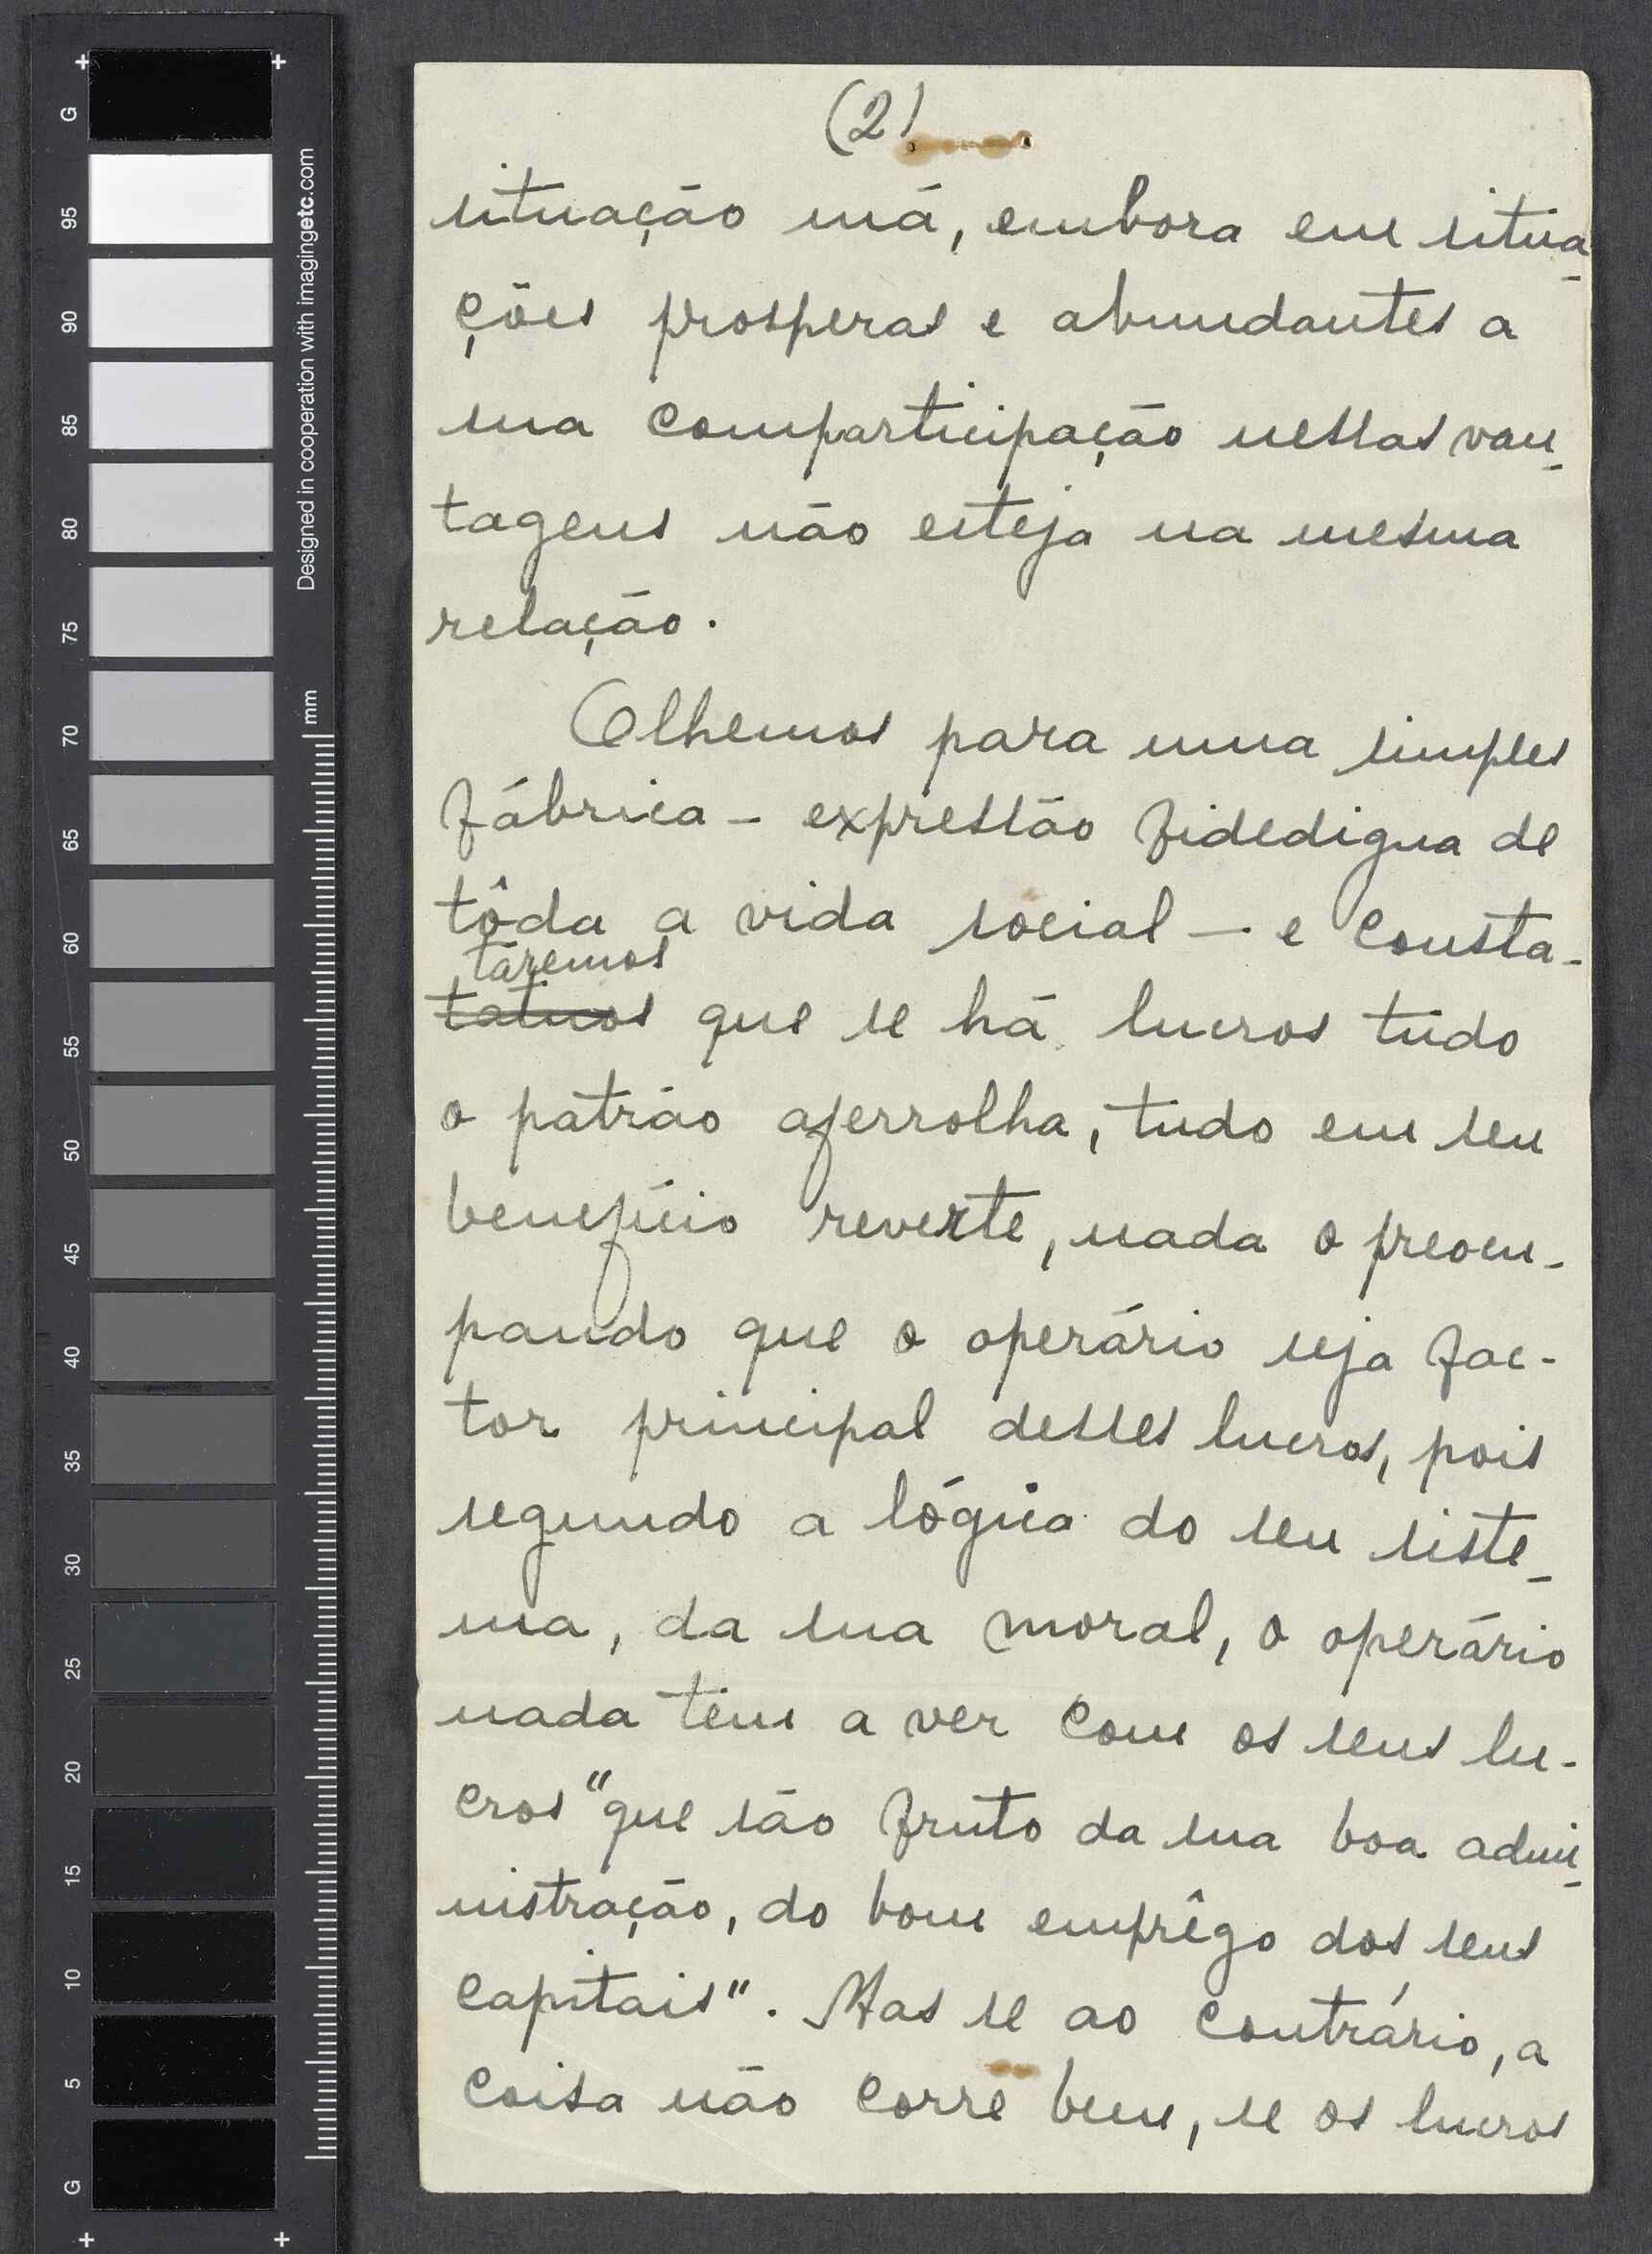 (2)
situação má, embora em situa-
ções prosperas e abundantes a
sua comparticipação nessas van-
tagens não esteja na mesma
relação.
Olhemos para uma simples
fábrica - expressão fidedigna de
tôda a vida social — e consta-
taremos
tatmos que se há lucros tudo
o patrão aferrolha, tudo em seu
benefício reverte, nada o preocu-
pando que o operário seja fac-
tor principal desses lucros, pois
segundo a lógica do seu siste-
ma, da sua moral, o operário
nada tem a ver com os seus lu-
cros "que são fruto da sua boa admi-
nistração, do bom emprêgo dos seus
capitais". Mas se ao contrário, a
coisa não corre bem, se os lucros
G
95
90
85
80
75
70
65
60
55
50
45
40
35
30
25
20
15
10
5
G
Designed in cooperation with imagingetc.com
mm